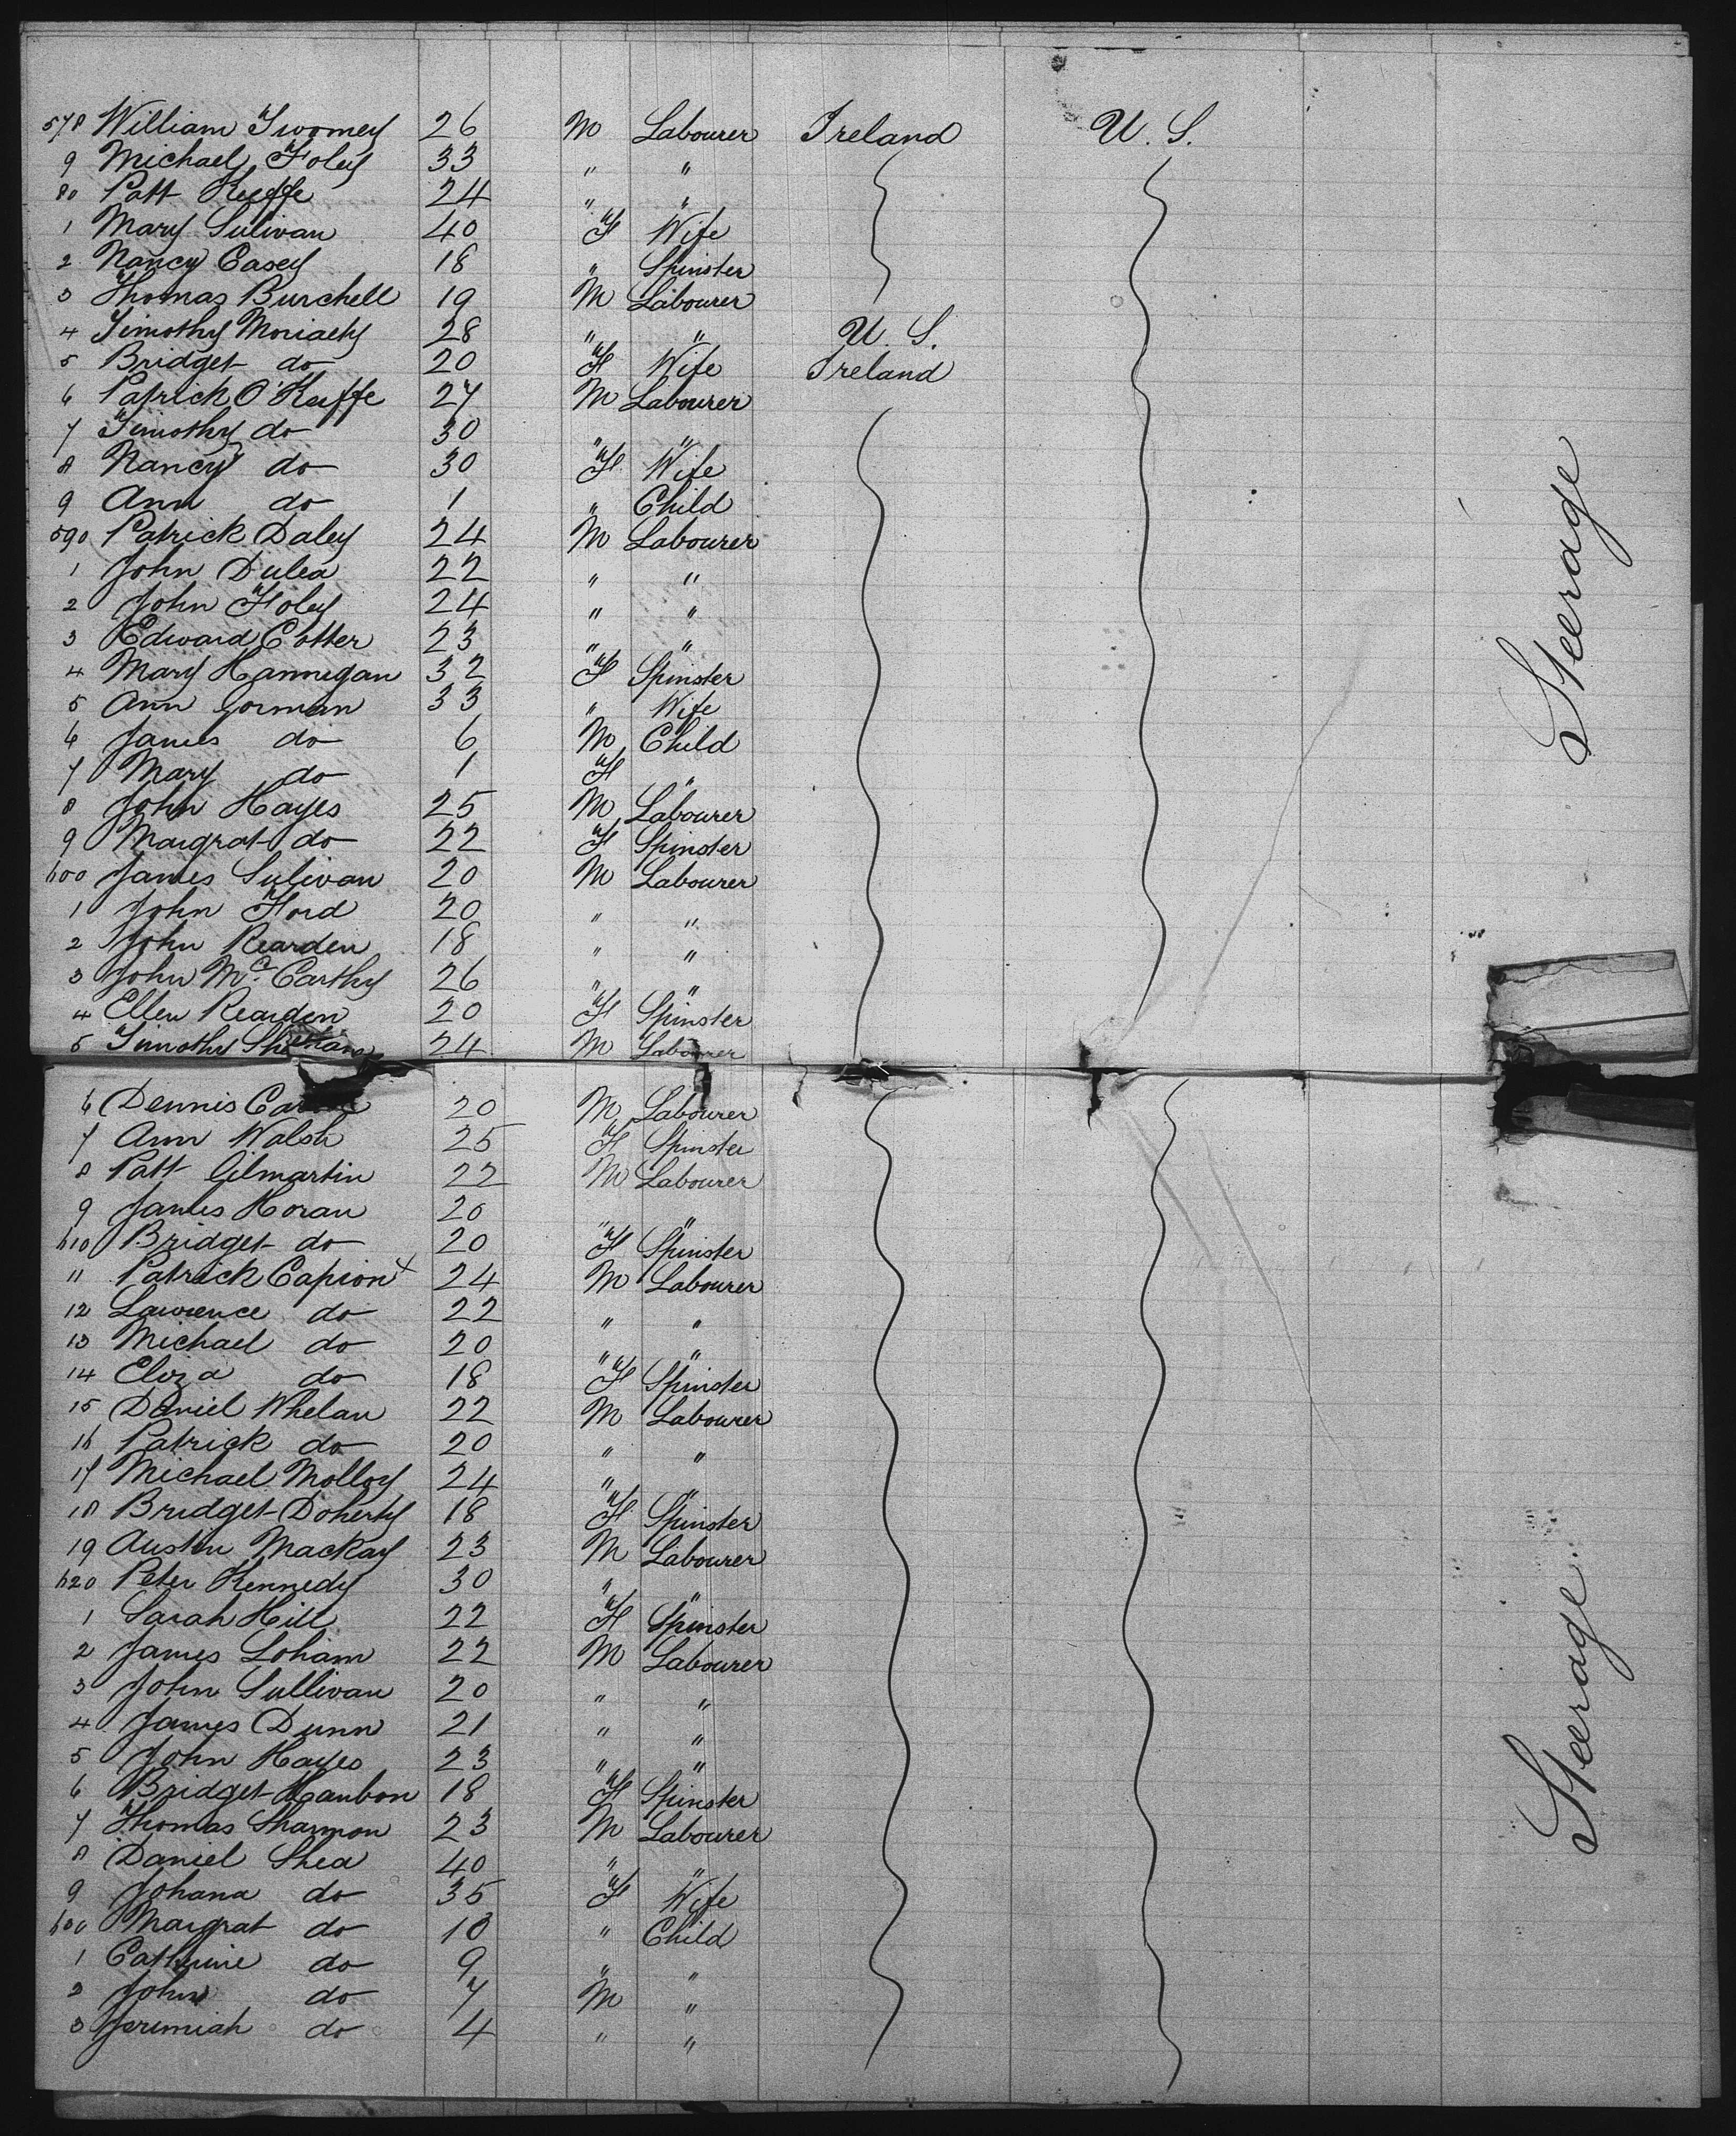 578 William Twomey 26 M Labourer Ireland U. S.
9 Michael Foley 33 " "
80 Patt Keeffe 24 " "
1 Mary Sulivan 40 F Wife
2 Nancy Casey 18 " Spinster
3 Thomas Burchell 19 M Labourer
4 Timothy Moriaty 28 " " U. S.
5 Bridget do 20 F Wife Ireland
6 Patrick O'Keeffe 27 M Labourer
7 Timothy do 30 " "
8 Nancy do 30 F Wife
9 Ann do 1 " Child
590 Patrick Daley 24 M Labourer
1 John Dulea 22 " "
2 John Foley 24 " "
3 Edward Cotter 23 " "
4 Mary Hannegan 32 F Spinster
5 Ann Gorman 33 " Wife
6 James do 6 M Child
7 Mary do 1 F "
8 John Hayes 25 M Labourer
9 Margrat do 22 F Spinster
600 James Sulivan 20 M Labourer
1 John Ford 20 " "
2 John Rearden 18 " "
3 John Mc Carthy 26 " "
4 Ellen Rearden 20 F Spinster
5 Timothy 24 M Labourer
Steerage
6 Dennis 20 M Labourer
7 Ann Walsh 25 F Spinster
8 Patt Gilmartin 22 M Labourer
9 James Horan 20 " "
610 Bridget do 20 F Spinster
11 Patrick Capion x 24 M Labourer
12 Lawrence do 22 " "
13 Michael do 20 " "
14 Eliza do 18 F Spinster
15 Daniel Whelan 22 M Labourer
16 Patrick do 20 " "
17 Michael Molloy 24 " "
18 Bridget Doherty 18 F Spinster
19 Austin Mackay 23 M Labourer
620 Peter Kennedy 30 " "
1 Sarah Hill 22 F Spinster
2 James Loham 22 M Labourer
3 John Sullivan 20 " "
4 James Dunn 21 " "
5 John Hayes 23 " "
6 Bridget Hanbon 18 F Spinster
7 Thomas Sharmon 23 M Labourer
8 Daniel Shea 40 " "
9 Johana do 35 F Wife
Margrat do 10 " Child
1 Cathrine do 9 " "
2 John do 7 M "
3 Jeremiah do 4 " "
Steerage